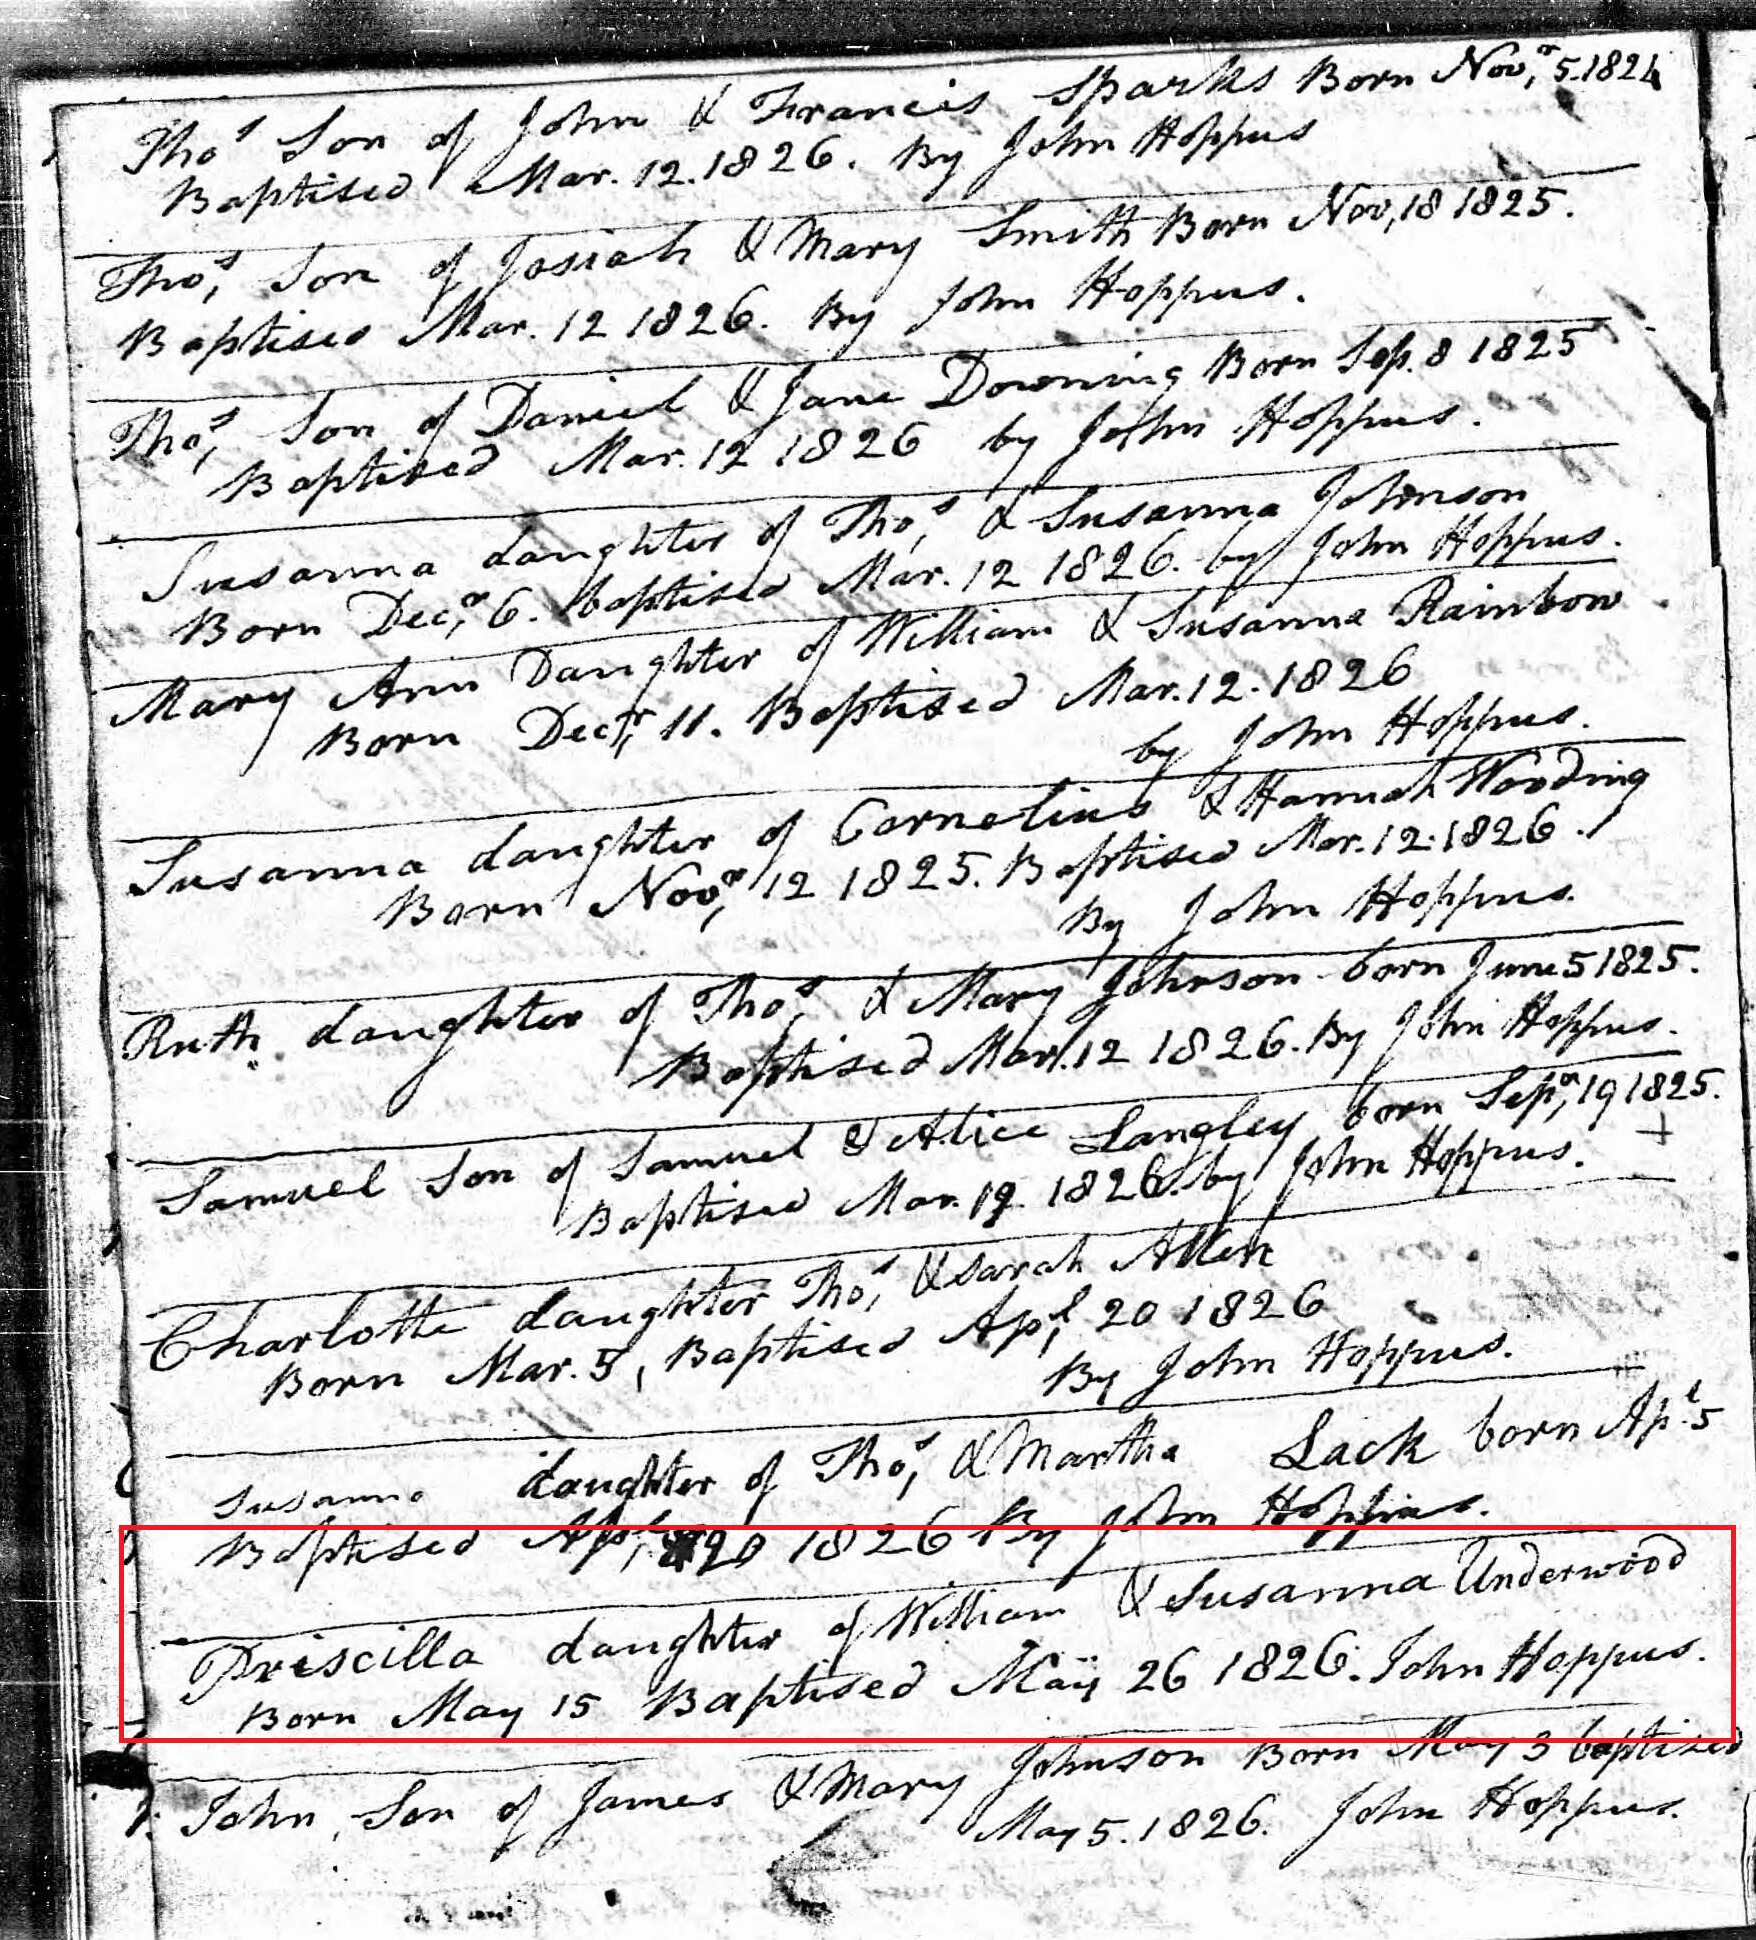 Tho,s Son of John & Francis Sparks Born Nov,r 5. 1824
Baptised Mar. 12. 1826. By John Hoppus
Tho,s Son of Josiah & Mary Smith Born Nov, 18 1825.
Baptised Mar. 12 1826. By John Hoppus.
Tho,s Son of Daniel & Jane Downing Born Sep. 8 1825
Baptised Mar. 12 1826 by John Hoppus.
Susanna daughter of Tho,s & Susanna Johnson
Born Dec,r 6. baptised Mar. 12 1826. by John Hoppus.
Mary Ann Daughter of William & Susanna Rainbow
Born Dec,r 11. Baptised Mar. 12. 1826
by John Hoppus.
Susanna daughter of Cornelius & Hannah Wooding
Born Nov,r 12 1825. Baptised Mar. 12. 1826.
By John Hoppus.
Ruth daughter of Tho,s & Mary Johnson born June 5 1825.
Baptised Mar. 12 1826. By John Hoppus.
Samuel Son of Samuel & Alice Langley born Sep,r 19 1825.
Baptised Mar. 1826. by John Hoppus.
Charlotte daughter Tho,s & Sarah Allen
Born Mar. 5, Baptised Ap,l 20 1826
By John Hoppus.
Susanna daughter of Tho,s & Martha Lack born Ap.l 5
Baptised Ap,l 20 1826 By John Hoppus.
Priscilla daughter of William & Susanna Underwood
Born May 15 Baptised May 26 1826. John Hoppus.
John, Son of James & Mary Johnson Born May 3 baptised
May 5. 1826. John Hoppus.